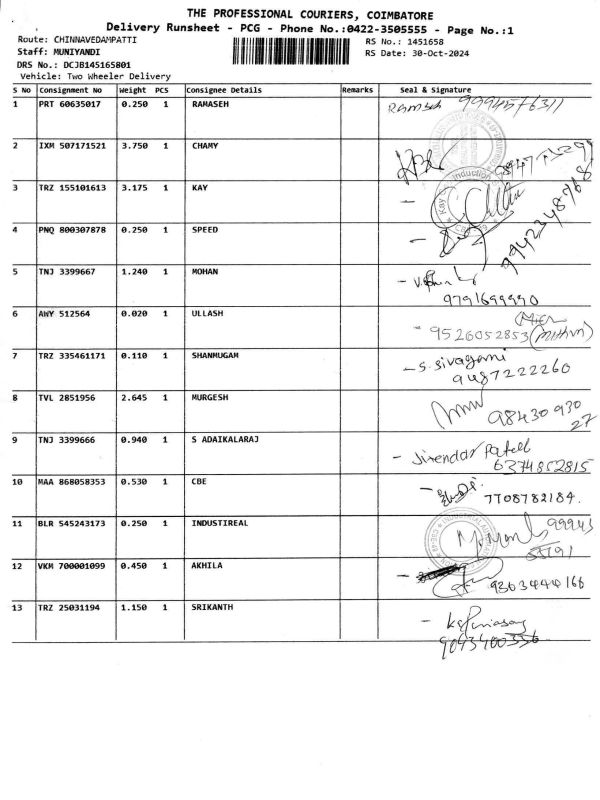 THE PROFESSIONAL COURIERS, COIMBATORE
Delivery Runsheet - PCG - Phone No.:0422-3505555 - Page No.:1
Route: CHINNAVEDAMPATTI RS No.: 1451658
Staff: MUNIYANDI RS Date: 30-Oct-2024
DRS No.: DCJB145165801
Vehicle: Two Wheeler Delivery
S No Consignment No Weight PCS Consignee Details Remarks Seal & Signature
1 PRT 60635017 0.250 1 RAMASEH Ramesh 9994576311
2 IXM 507171521 3.750 1 CHAMY
3 TRZ 155101613 3.175 1 KAY
4 PNQ 800307878 0.250 1 SPEED 9942348768
5 TNJ 3399667 1.240 1 MOHAN 9791699990
6 AWY 512564 0.020 1 ULLASH - 9526052853 (Mithun)
7 TRZ 335461171 0.110 1 SHANMUGAM - S. Sivagami
9487222260
8 TVL 2851956 2.645 1 MURGESH 98430 930
27
9 TNJ 3399666 0.940 1 S ADAIKALARAJ - Jitendar Patell
6374852815
10 MAA 868058353 0.530 1 CBE 7708782184.
11 BLR 545243173 0.250 1 INDUSTIREAL 99943
55191
12 VKM 700001099 0.450 1 AKHILA 9363444166
13 TRZ 25031194 1.150 1 SRIKANTH
9043400336